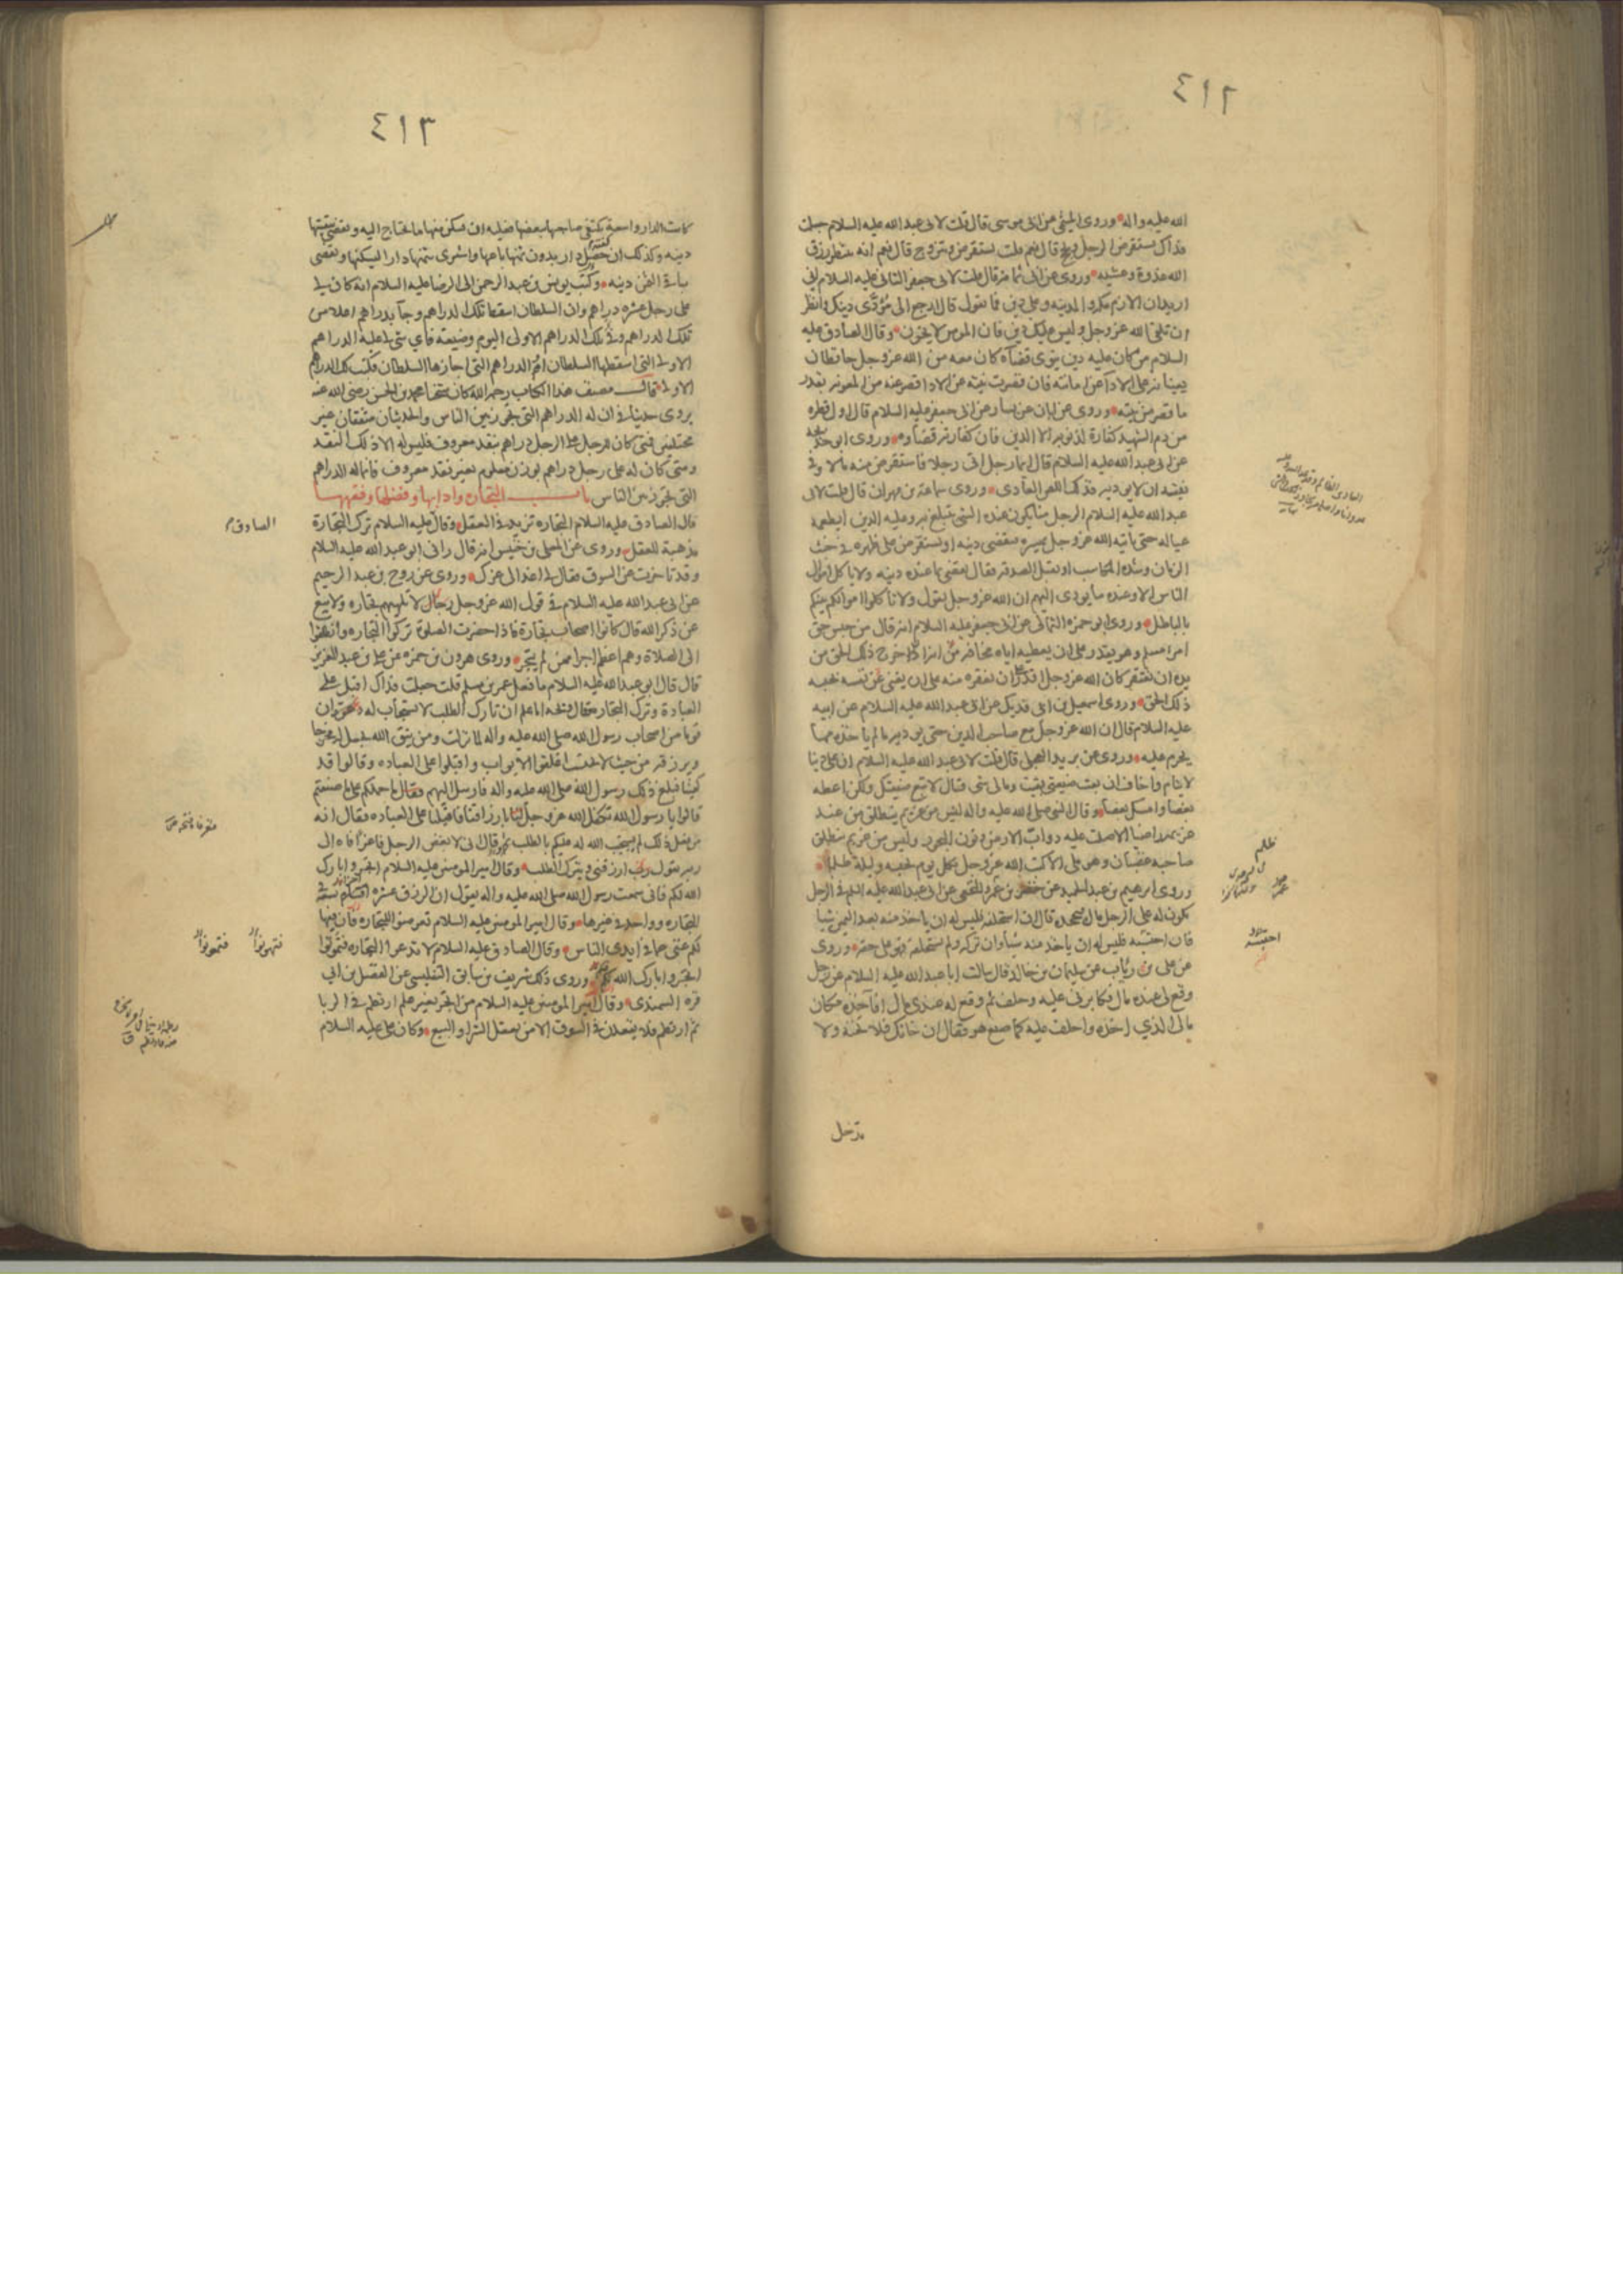 ٤١٢
الله عليه واله وروى الميثمى عن ابى موسى قال قلت لابى عبد الله عليه السلام جعلت
فداك يستقرض الرجل ويحج قال نعم قلت يستقرض ويتزوج قال نعم انه ينتظر رزق
الله غدوة وعشيه وروى عن ابى ثمامة قال قلت لابى جعفر الثانى عليه السلام انى
اريد ان الازم مكه والمدينه وعلى دين فما تقول قال ارجع الى مؤدى دينك وانظر
ان تلقى الله عز وجل وليس عليك دين فان المومن لا يخون وقال الصادق عليه
السلام من كان عليه دين ينوى قضاه كان معه من الله عز وجل حافظان
يعينانه على الادآ عن امانته فان قصرت نيته عن الادا قصر عنه من المعونه بقدر
ما قصر من نيته وروى عن ابان عن بشار عن ابى جعفر عليه السلام قال اول قطره
من دم الشهيد كفارة لذنوبه الا الدين فان كفارته قضاوه وروى ابو خديجه
عن ابى عبد الله عليه السلام قال ايما رجل اتى رجلا فاستقرض منه مالا وفى
نيته ان لا يوديه فذلك اللص العادى وروى سماعة بن مهران قال قلت لابى
عبد الله عليه السلام الرجل منا يكون عنده الشى يتبلغ به وعليه الدين ايطعمه
عياله حتى ياتيه الله عز وجل بميسره فيقضى دينه او يستقرض على ظهره فى خبث
الزمان وشده المكاسب او يقبل الصدقه فقال يقضى بما عنده دينه ولا ياكل اموال
الناس الا وعنده ما يودى اليهم ان الله عز وجل يقول ولا تاكلوا اموالكم بينكم
بالباطل وروى ابو حمزه الثمالى عن ابى جعفر عليه السلام انه قال من حبس حق
امرء مسلم وهو يقدر على ان يعطيه اياه مخافة من انه ان خرج ذلك الحق من
يده ان يفتقر كان الله عز وجل اقدر على ان يفقره منه على ان يغنى عن نفسه بحبسه
ذلك الحق وروى اسمعيل بن ابى فديك عن ابى عبد الله عليه السلام عن ابيه
عليه السلام قال ان الله عز وجل مع صاحب الدين حتى يوديه ما لم ياخذه مما
يحرم عليه وروى عن بريد العجلى قال قلت لابى عبد الله عليه السلام ان على دينا
لايتام واخاف ان بعت ضيعتى بقيت ومالى شى فقال لا تبع ضيعتك ولكن اعطه
بعضا وامسك بعضا وقال النبى صلى الله عليه واله ليس من غريم ينطلق من عند
غريمه راضيا الا صلت عليه دواب الارض ونون البحور وليس من غريم ينطلق
صاحبه غضبان وهو ملى الا كتب الله عز وجل بكل يوم يحبسه وليلة ظلما
وروى ابرهيم بن عبد الحميد عن خضر بن عمرو النخعى عن ابى عبد الله عليه السلم فى الرجل
يكون له على الرجل مال فيجحده قال ان استحلفه فليس له ان ياخذ منه بعد اليمين شيا
فان احتبسه فليس له ان ياخذ منه شيأ وان تركه ولم يستحلفه فهو على حقه وروى
عن على بن رئاب عن سليمان بن خالد قال سالت ابا عبد الله عليه السلام عن رجل
وقع لى عنده مال فكابرنى عليه وحلف ثم وقع له عندى مال افآخذه مكان
مالى الذى اخذه واحلف عليه كما صنع هو فقال ان خانك فلا تخنه ولا
تدخل
ظلم
احتبسه
٤١٣
كانت الدار واسعة يكتفى صاحبها ببعضها فعليه ان يسكن منها ما يحتاج اليه ويقضى ببقيتها
دينه وكذلك ان كفته دار بدون ثمنها باعها واشترى بثمنها دارا ليسكنها ويقضى
باقى الثمن دينه وكتب يونس بن عبد الرحمن الى الرضا عليه السلام انه كان لى
على رجل عشره دراهم وان السلطان اسقط تلك الدراهم وجآ بدراهم اعلا من
تلك الدراهم وفى تلك الدراهم الاولى اليوم وضيعة فاى شى لى عليه الدراهم
الاولى التى اسقطها السلطان ام الدراهم التى اجازها السلطان فكتب لك الدراهم
الاولى قال مصنف هذا الكتاب رحمه الله كان شيخنا محمد بن الحسن رضى الله عنه
يروى حديثا فى ان له الدراهم التى تجوز بين الناس والحديثان متفقان غير
مختلفين فمتى كان للرجل على الرجل دراهم بنقد معروف فليس له الا ذلك النقد
ومتى كان له على رجل دراهم بوزن معلوم بغير نقد معروف فانما له الدراهم
التى تجوز بين الناس باب التجاره وادابها وفضلها وفقهها
قال الصادق عليه السلام التجاره تزيد فى العقل وقال عليه السلام ترك التجارة
مذهبة للعقل وروى عن المعلى بن خنيس انه قال رانى ابو عبد الله عليه السلام
وقد تاخرت عن السوق فقال لى اغد الى عزك وروى عن روح بن عبد الرحيم
عن ابى عبد الله عليه السلام فى قول الله عز وجل رجال لا تلهيهم تجاره ولا بيع
عن ذكر الله قال كانوا اصحاب تجارة فاذا حضرت الصلوة تركوا التجاره وانطلقوا
الى الصلاة وهم اعظم اجرا ممن لم يتجر وروى هرون بن حمزه عن على بن عبد العزيز
قال قال ابو عبد الله عليه السلام ما فعل عمر بن مسلم قلت جعلت فداك اقبل على
العبادة وترك التجارة فقال ويحه اما علم ان تارك الطلب لا يستجاب له دعوة ان
قوما من اصحاب رسول الله صلى الله عليه واله لما نزلت ومن يتق الله يجعل له مخرجا
ويرزقه من حيث لا يحتسب اغلقوا الابواب واقبلوا على العباده وقالوا قد
كفينا فبلغ ذلك رسول الله صلى الله عليه واله فارسل اليهم فقال ما حملكم على ما صنعتم
قالوا يا رسول الله تكفل الله عز وجل لنا بارزاقنا فاقبلنا على العباده فقال انه
من فعل ذلك لم يستجب الله له عليكم بالطلب ثم قال انى لابغض الرجل فاغرا فاه الى
ربه يقول رب ارزقنى ويترك الطلب وقال امير المومنين عليه السلام اتجروا بارك
الله لكم فانى سمعت رسول الله صلى الله عليه واله يقول ان الرزق عشره اجزاء تسعة فى
التجاره وواحد فى غيرها وقال امير المومنين عليه السلام تعرضوا للتجاره فان فيها
لكم غنى عما فى ايدى الناس وقال الصادق عليه السلام لا تدعوا التجاره فتهونوا
اتجروا بارك الله لكم وروى ذلك شريف بن سابق التفليسى عن الفضل بن ابى
قره السمندى وقال امير المومنين عليه السلام من اتجر بغير علم ارتطم فى الربا
ثم ارتطم فلا يقعدن فى السوق الا من يعقل الشرا والبيع وكان على عليه السلام
الصادق م
فتهونوا
فتمونوا